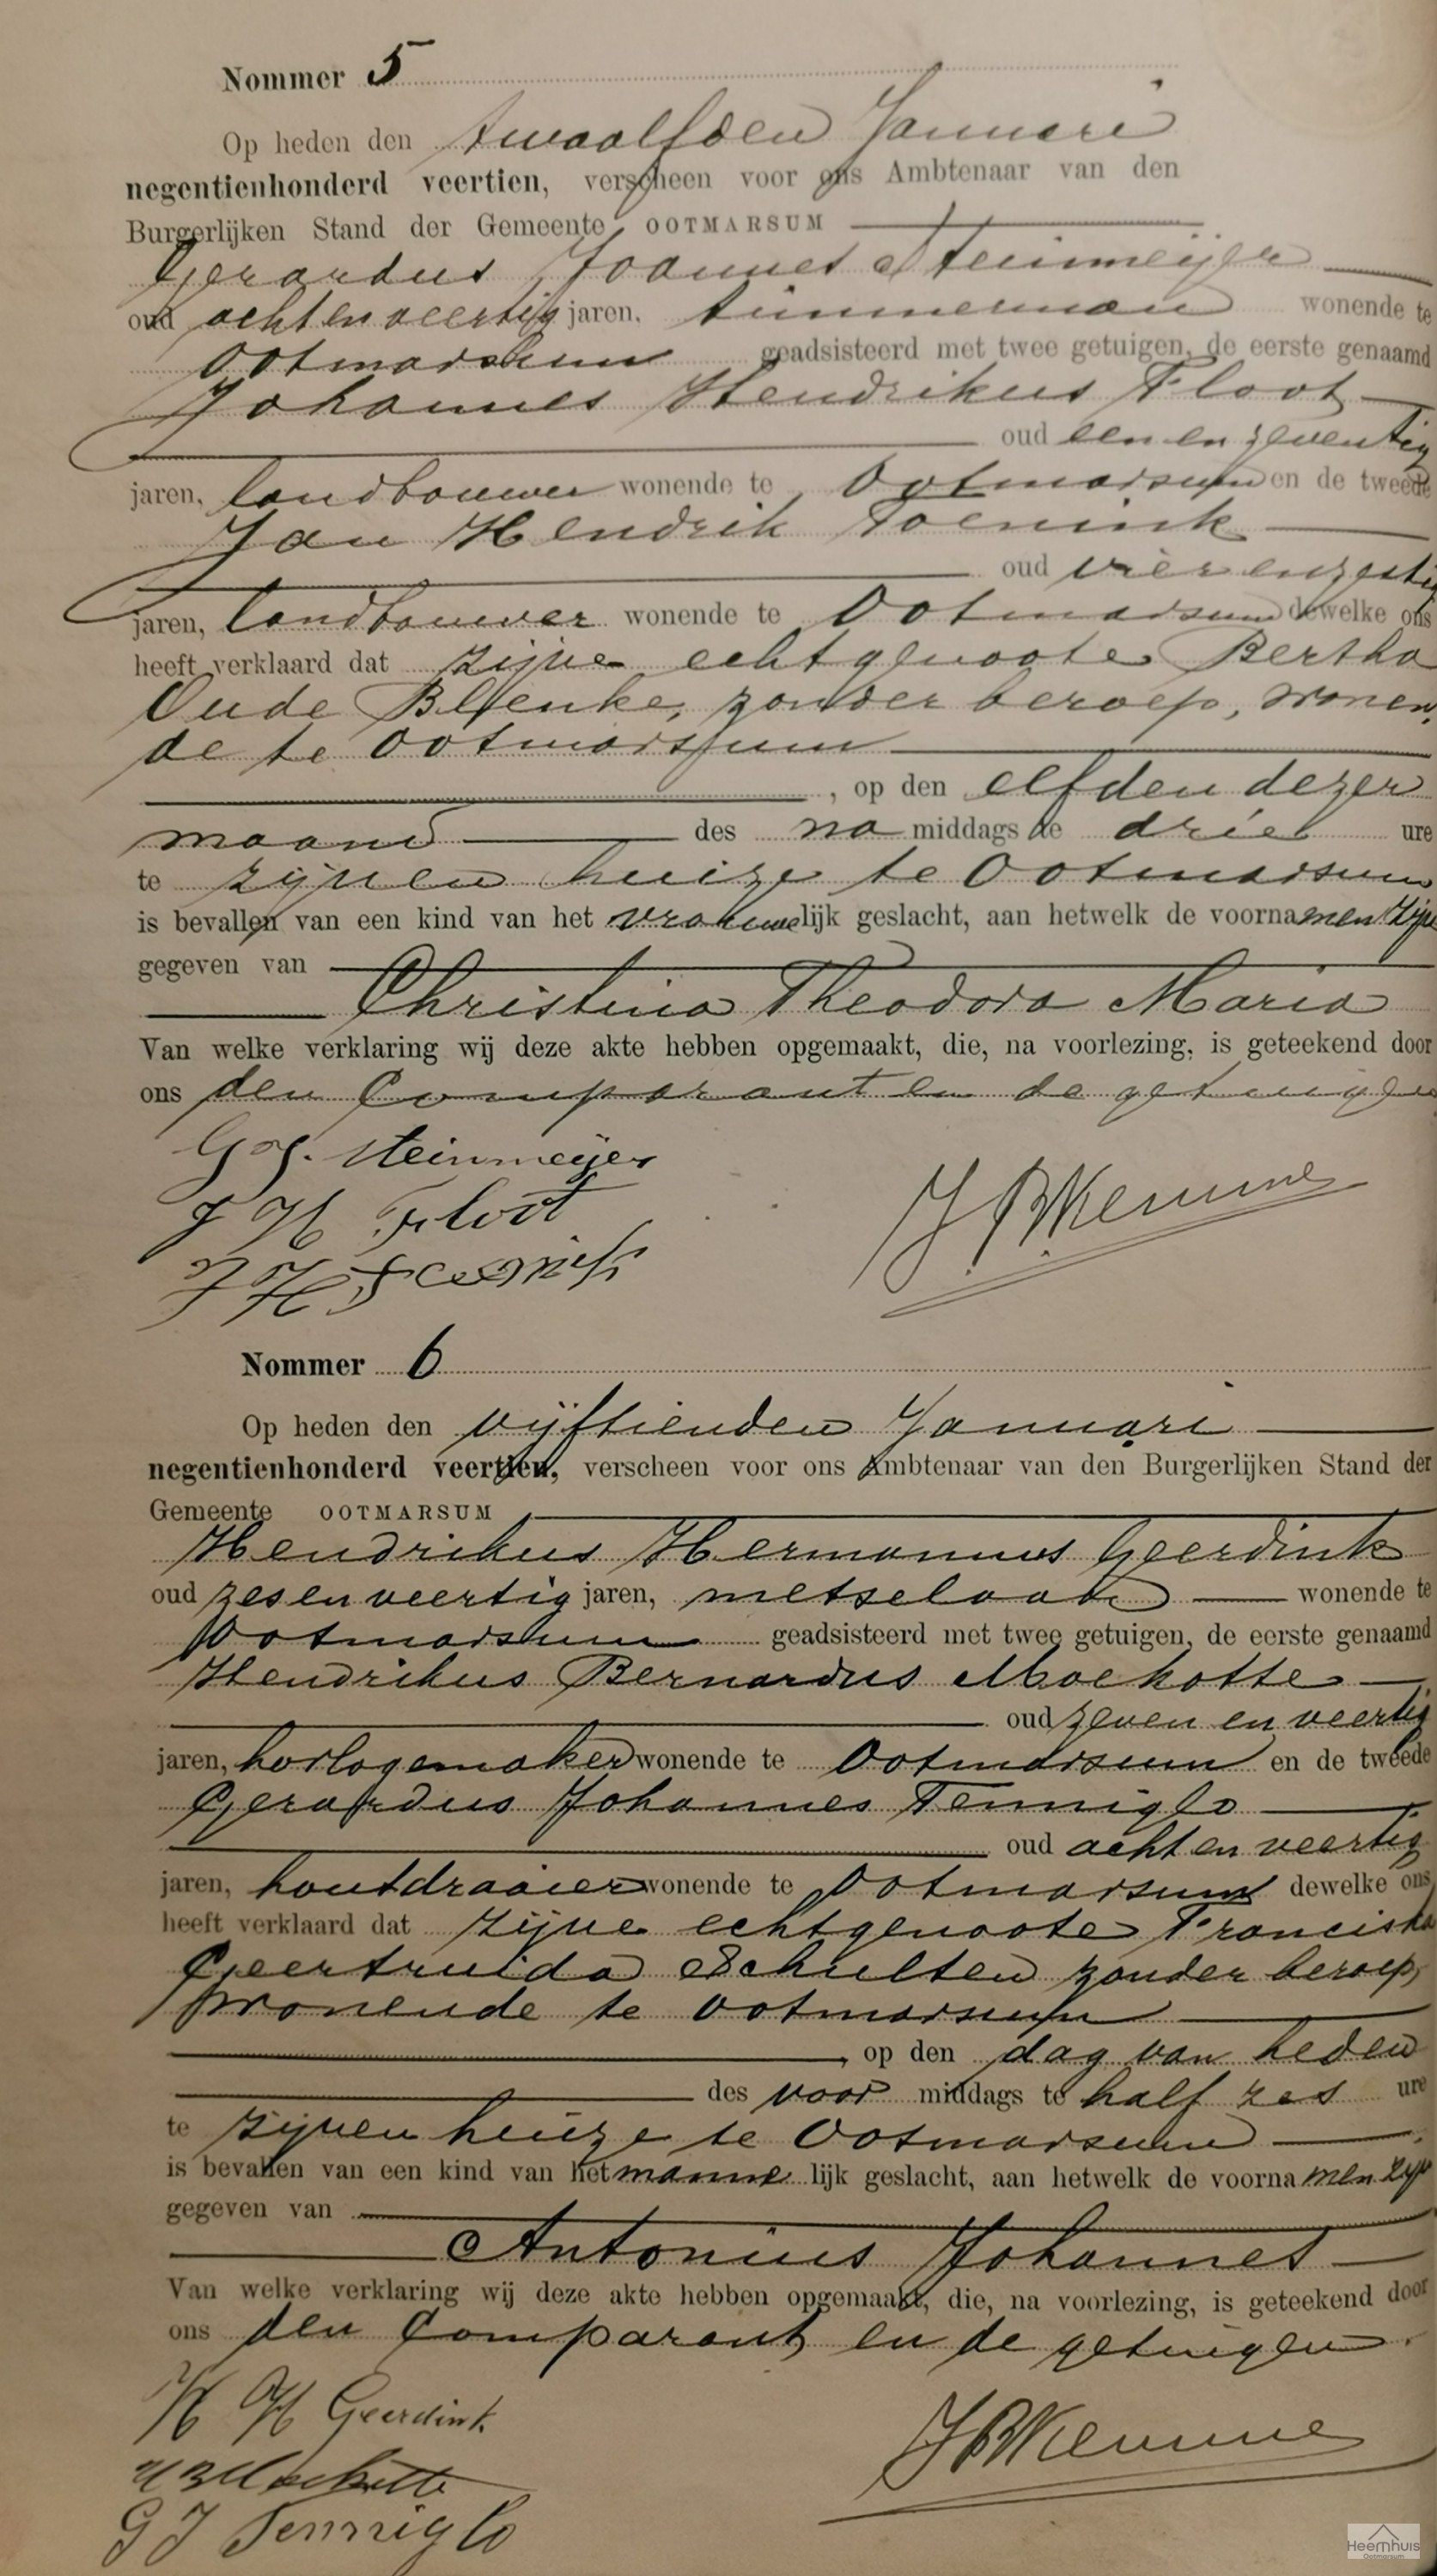 Nommer 5
Op heden den twaalfden Januari
negentienhonderd veertien, verscheen voor ons Ambtenaar van den
Burgerlijken Stand der Gemeente OOTMARSUM
Gerardus Joannes Steinmeijer
oud achtenveertig jaren, timmerman wonende te
Ootmarsum geadsisteerd met twee getuigen, de eerste genaamd
Johannes Hendrikus Floot
oud een en zeventig
jaren, landbouwer wonende te Ootmarsum en de tweede
Jan Hendrik
oud vier en zestig
jaren, landbouwer wonende te Ootmarsum dewelke ons
heeft verklaard dat zijne echtgenoote Bertha
Oude Blenke, zonder beroep, wonen,
de te Ootmarsum
, op den elfden dezer
maand des na middags de drie ure
te zijnen huize te Ootmarsum
is bevallen van een kind van het vrouwelijk geslacht, aan hetwelk de voornamen zijn
gegeven van
Christina Theodora Maria
Van welke verklaring wij deze akte hebben opgemaakt, die, na voorlezing, is geteekend door
ons den Comparant en de getuigen
G J. Steinmeijer
J H Floot
J H
Nommer 6
Op heden den vijftienden Januari
negentienhonderd veertien, verscheen voor ons Ambtenaar van den Burgerlijken Stand der
Gemeente OOTMARSUM
Hendrikus Hermannus Geerdink
oud zesenveertig jaren, metselaar wonende te
Ootmarsum geadsisteerd met twee getuigen, de eerste genaamd
Hendrikus Bernardus Mockotte
oud zeven en veertig
jaren, horlogemaker wonende te Ootmarsum en de tweede
Gerardus Johannes Tenniglo
oud acht en veertig
jaren, houtdraaier wonende te Ootmarsum dewelke ons
heeft verklaard dat zijne echtgenoote Franciska
Geertruida Schulten zonder beroep,
wonende te Ootmarsum
, op den dag van heden
des voor middags te half zes ure
te zijnen huize te Ootmarsum
is bevallen van een kind van het mannelijk geslacht, aan hetwelk de voornamen zijn
gegeven van
Antonius Johannes
Van welke verklaring wij deze akte hebben opgemaakt, die, na voorlezing, is geteekend door
ons den Comparant en de getuigen.
H H Geerdink
H B Mockotte
G J Tenniglo
Heemhuis
Ootmarsum